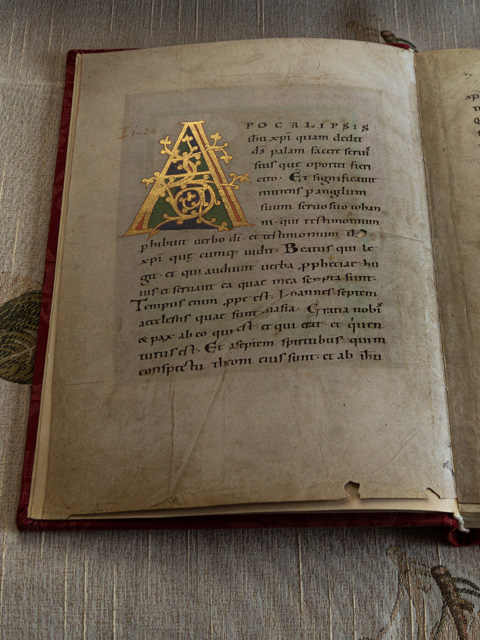 APOCALIPSIS
ihu xpi quam dedit
ds palam facere serui
suis quę oportet fieri
cito. Et significauit
mittens p angelum
suum seruo suo iohan
ni. qui testimonium
phibuit uerbo di. et testimonium ihu
xpi quę cumq; uidit. Beatus qui le
git. et qui audiunt uerba pphetiae hu
ius et seruant ea quae in ea scripta sunt.
Tempus enim ppe est. Iohannes septem
aecclesiis quae sunt in asia. Gratia uobis
& pax ab eo qui est. et qui erat. et qui uen
turus est. Et a septem spiritibus. qui in
conspectu throni eius sunt. et ab ihu
xp